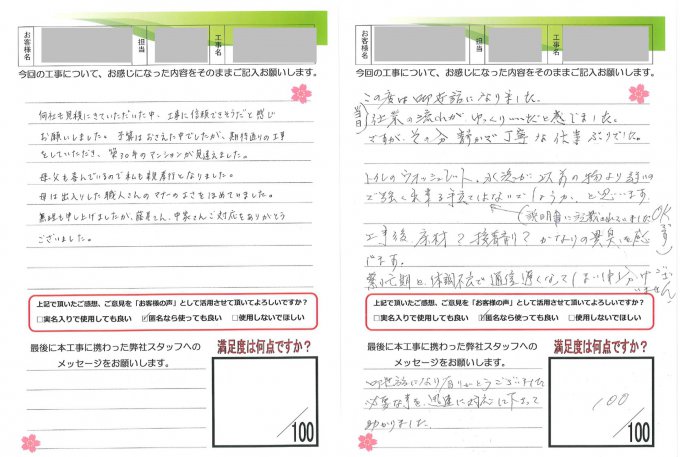 お客様名
担当
工事名
今回の工事について、お感じになった内容をそのままご記入お願いします。
何社も見積にきていただいた中、工事に信頼できそうだと感じ
お願いしました。予算はおさえた中でしたが、期待通りの工事
をしていただき、築70年のマンションが見違えました。
母、父も喜んでいるので私も親孝行となりました。
母は出入りした職人さんのマナーのよさをほめていました。
無理も申し上げましたが、さん、さんご対応をありがとう
ございました。
上記で頂いたご感想、ご意見を「お客様の声」として活用させて頂いてよろしいですか？
□実名入りで使用しても良い ☑匿名なら使っても良い □使用しないでほしい
最後に本工事に携わった弊社スタッフへの
メッセージをお願いします。
満足度は何点ですか？
/100
お客様名
担当
工事名
今回の工事について、お感じになった内容をそのままご記入お願いします。
この度は御世話になりました。
当日
仕業の流れがゆっくり…だと感じました。
ですが、その分静かで丁寧な仕事ぶりでした。
トイレのウォッシュレット、水流が以前の物より
強く出来る予定ではないでしょうか、と思います
(説明書に記載されていましたOKです)
工事後 床材？接着剤？かなりの異臭を感
じます。
業忙期と、体調不応で通信遅くなってしまい申しわけございません
上記で頂いたご感想、ご意見を「お客様の声」として活用させて頂いてよろしいですか？
□実名入りで使用しても良い ☑匿名なら使っても良い □使用しないでほしい
最後に本工事に携わった弊社スタッフへの
メッセージをお願いします。
御世話になりありがとうございました
必要な事を、迅速に対応して下さって
助かりました。
満足度は何点ですか？
100
/100